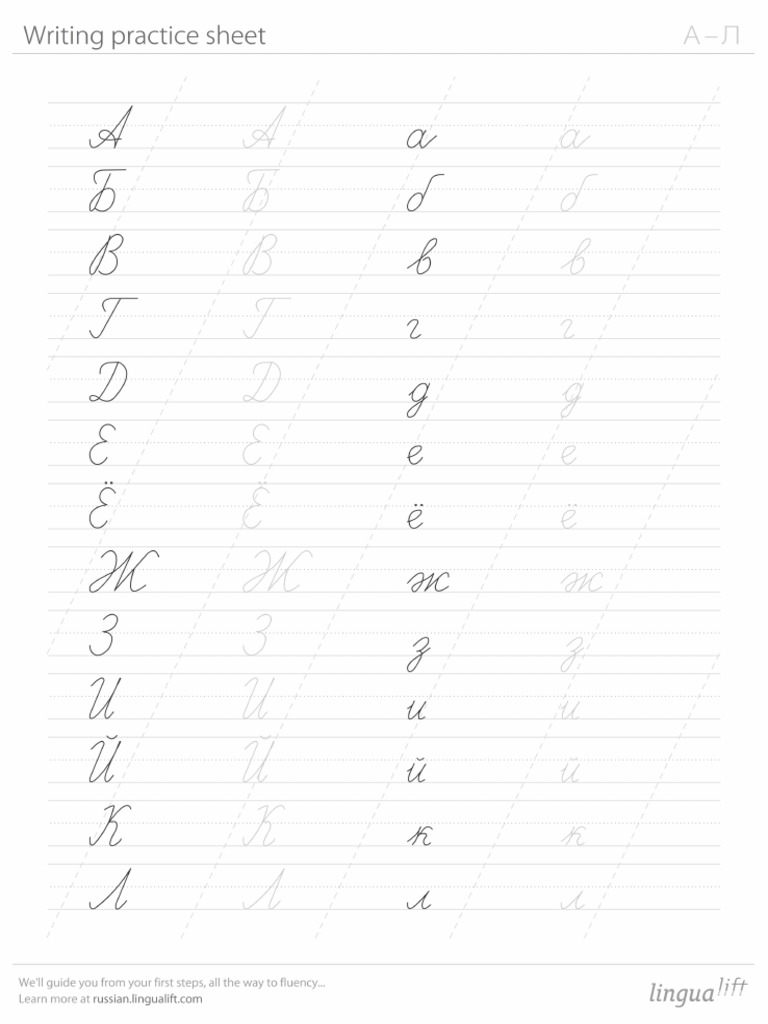 Writing practice sheet А–Л
А А а а
Б Б б б
В В в в
Г Г г г
Д Д д д
Е Е е е
Ё Ё ё ё
Ж Ж ж ж
З З з з
И И и и
Й Й й й
К К к к
Л Л л л
We'll guide you from your first steps, all the way to fluency...
Learn more at russian.lingualift.com
lingualift